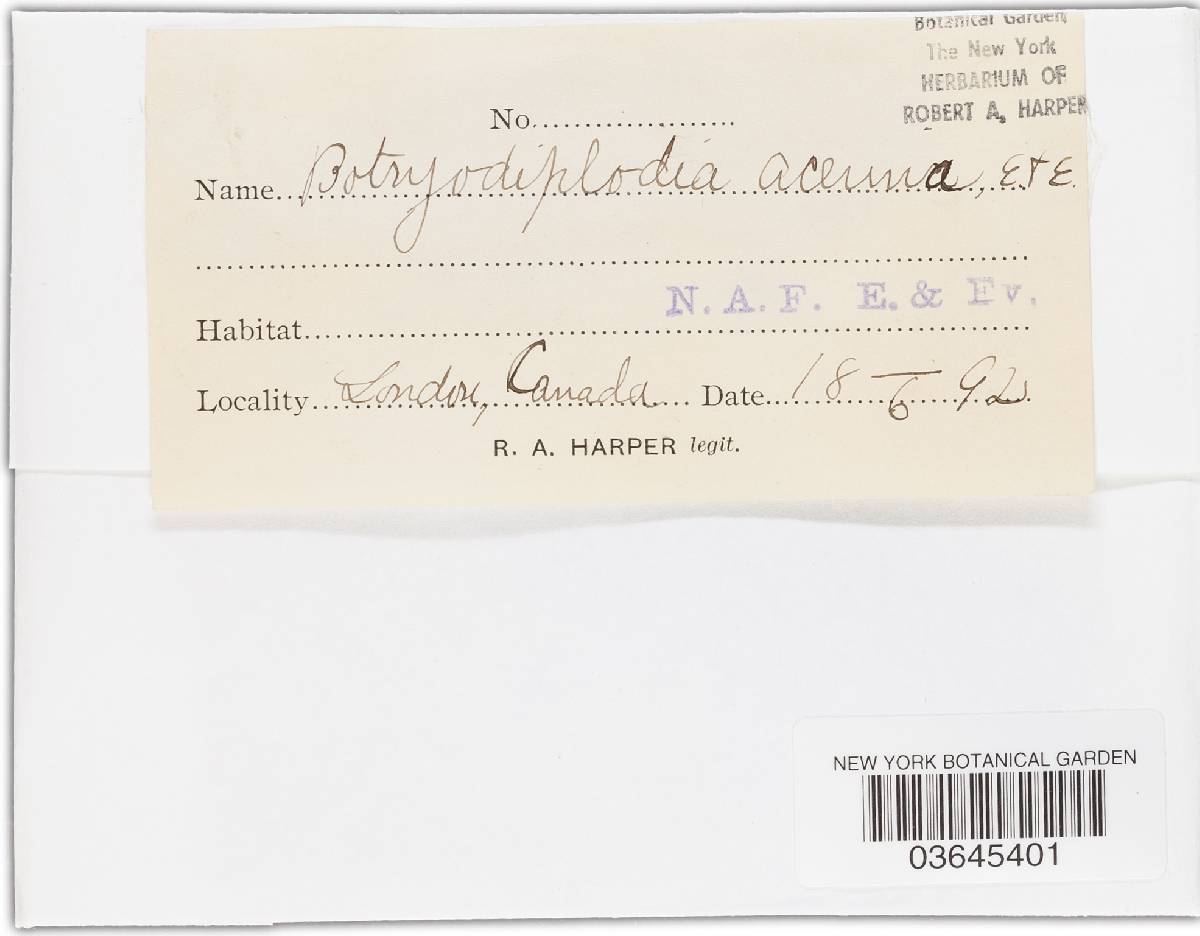 Botanical Garden,
The New York
HERBARIUM OF
ROBERT A. HARPER
No.
Name Botryodiplodia acerina, E & E.
N. A. F. E. & Ev.
Habitat
Locality London, Canada Date 18/6 92
R. A. HARPER legit.
NEW YORK BOTANICAL GARDEN
03645401